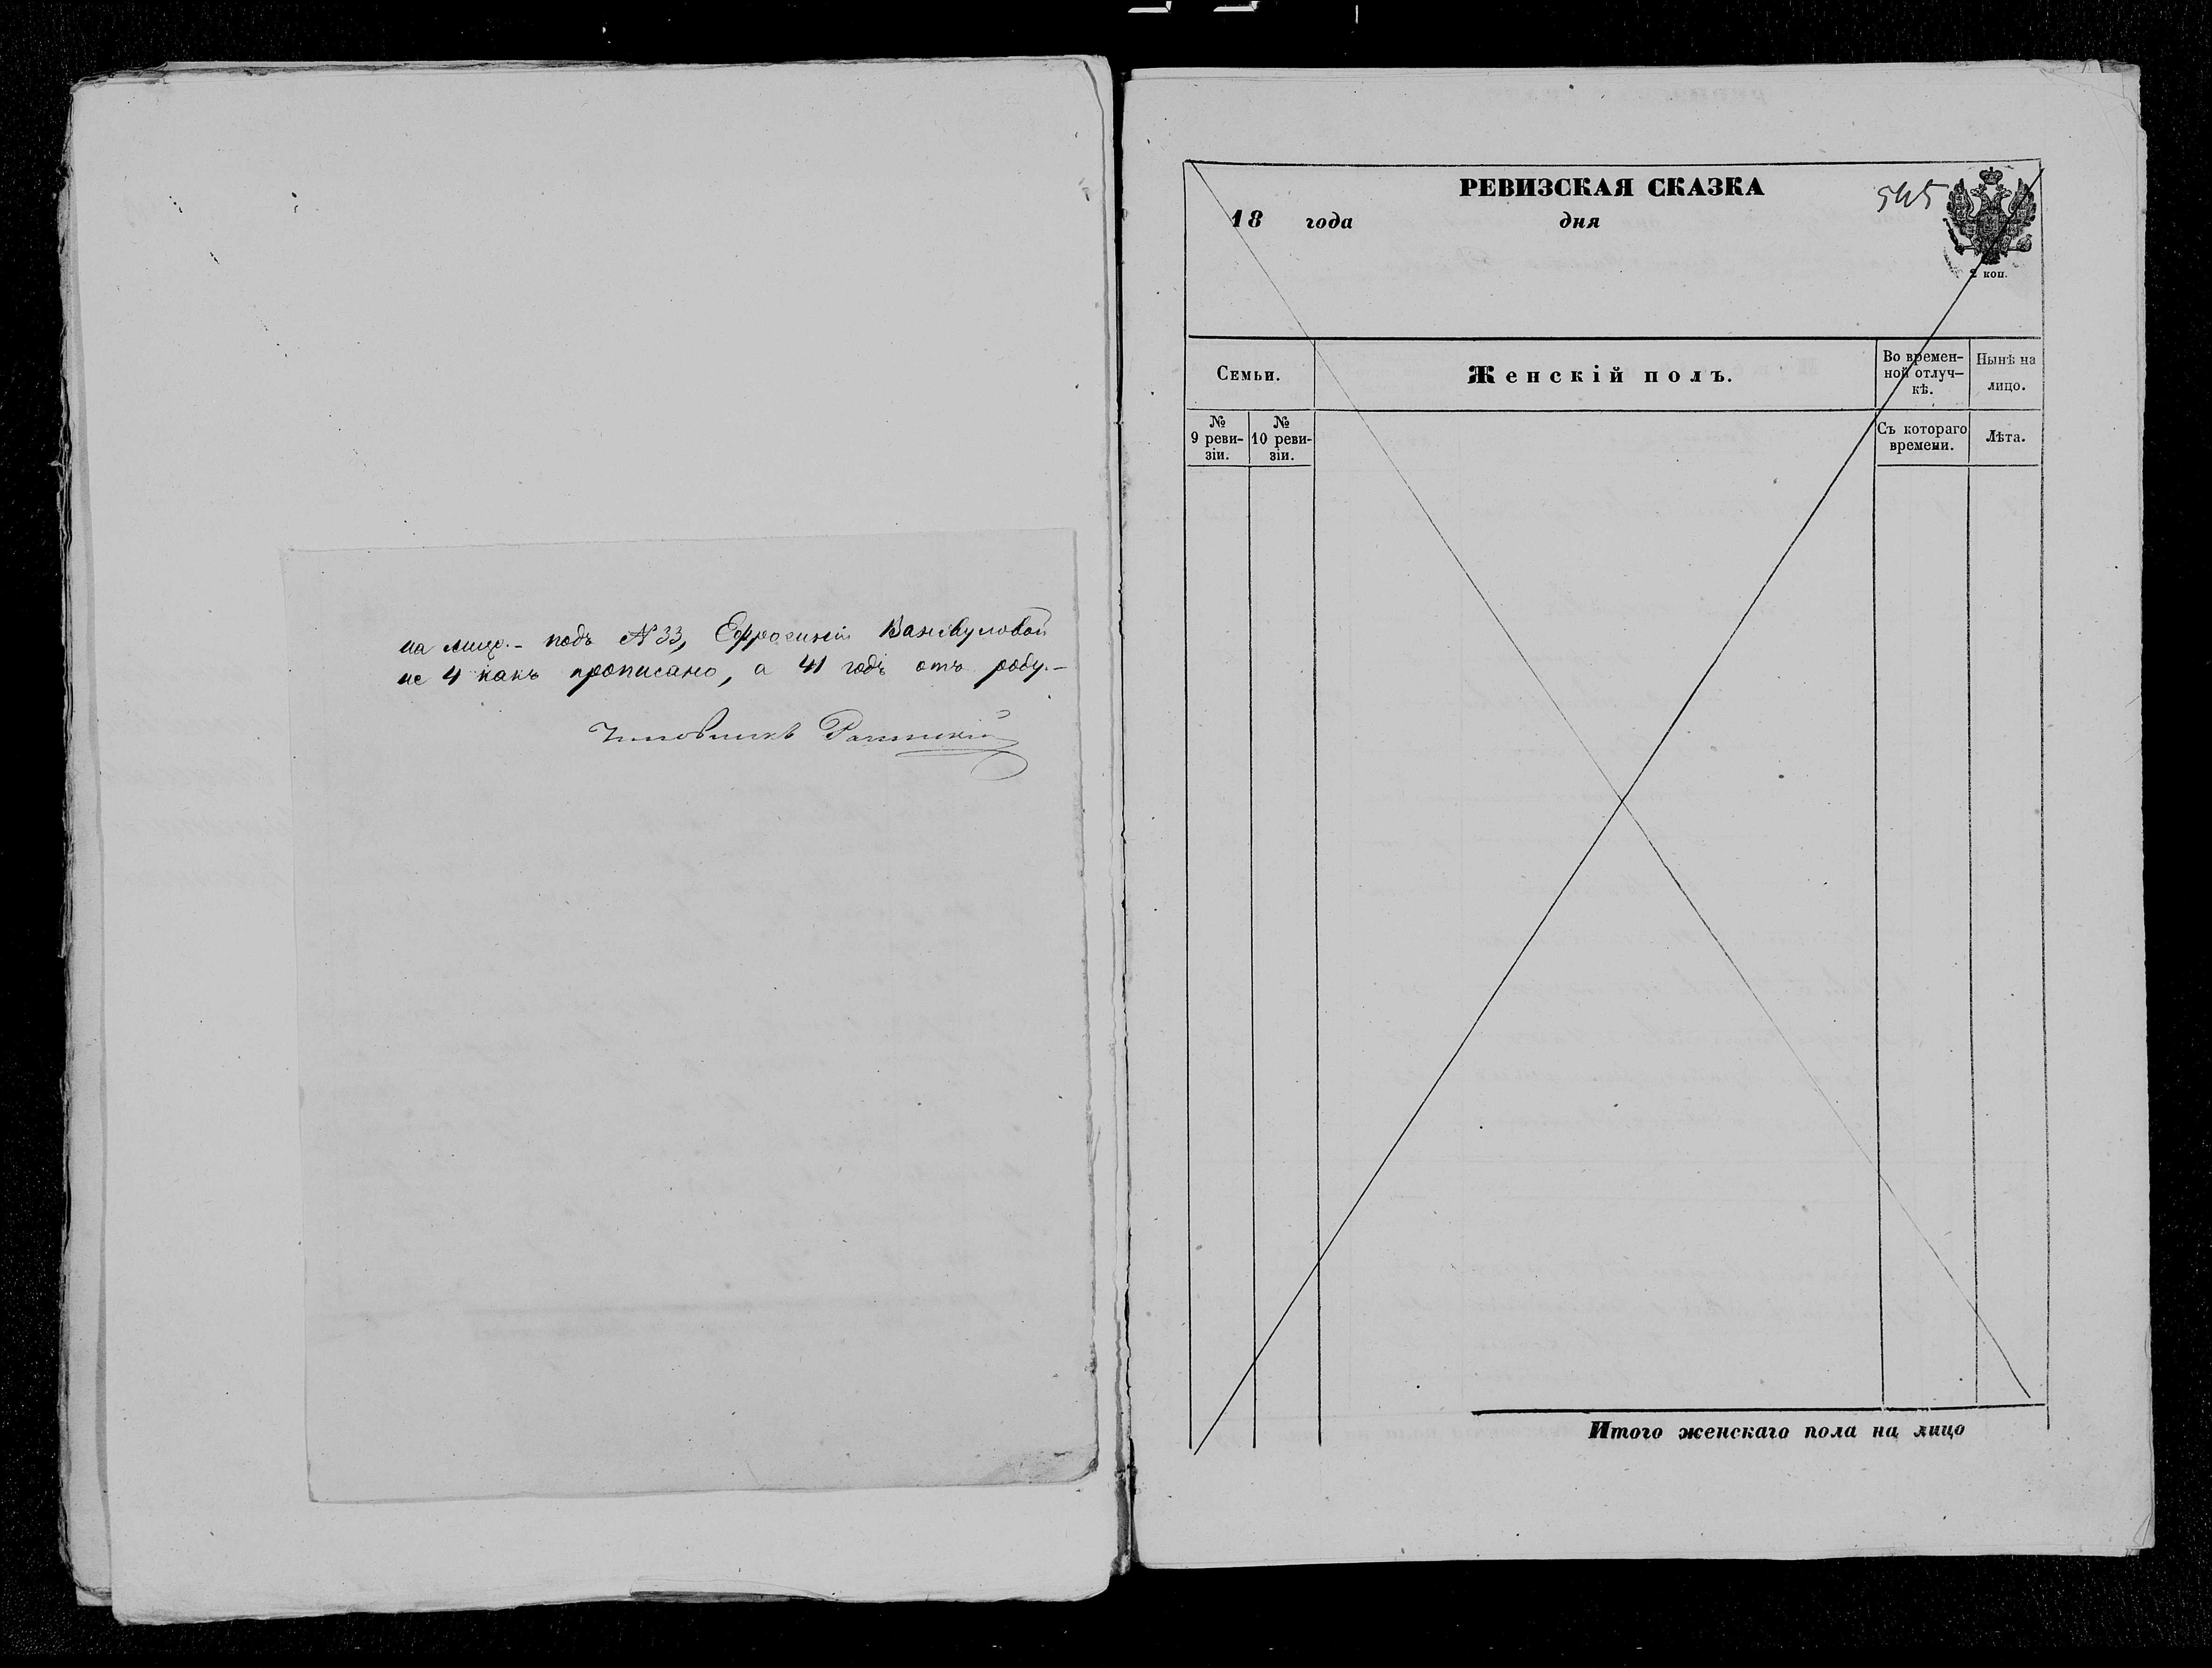 на лицо.- подъ № 33, Ефросиніи
не 4 какъ прописано, а 41 годъ отъ роду.-
Чиновникъ
РЕВИЗСКАЯ СКАЗКА
545
18 года дня
2 коп.
Семьи.
Женскій полъ.
Во времен-
ной отлуч-
кѣ.
Нынѣ на
лицо.
№
9 реви-
зіи.
№
10 реви-
зіи.
Съ котораго
времени.
Лѣта.
Итого женскаго пола на лицо